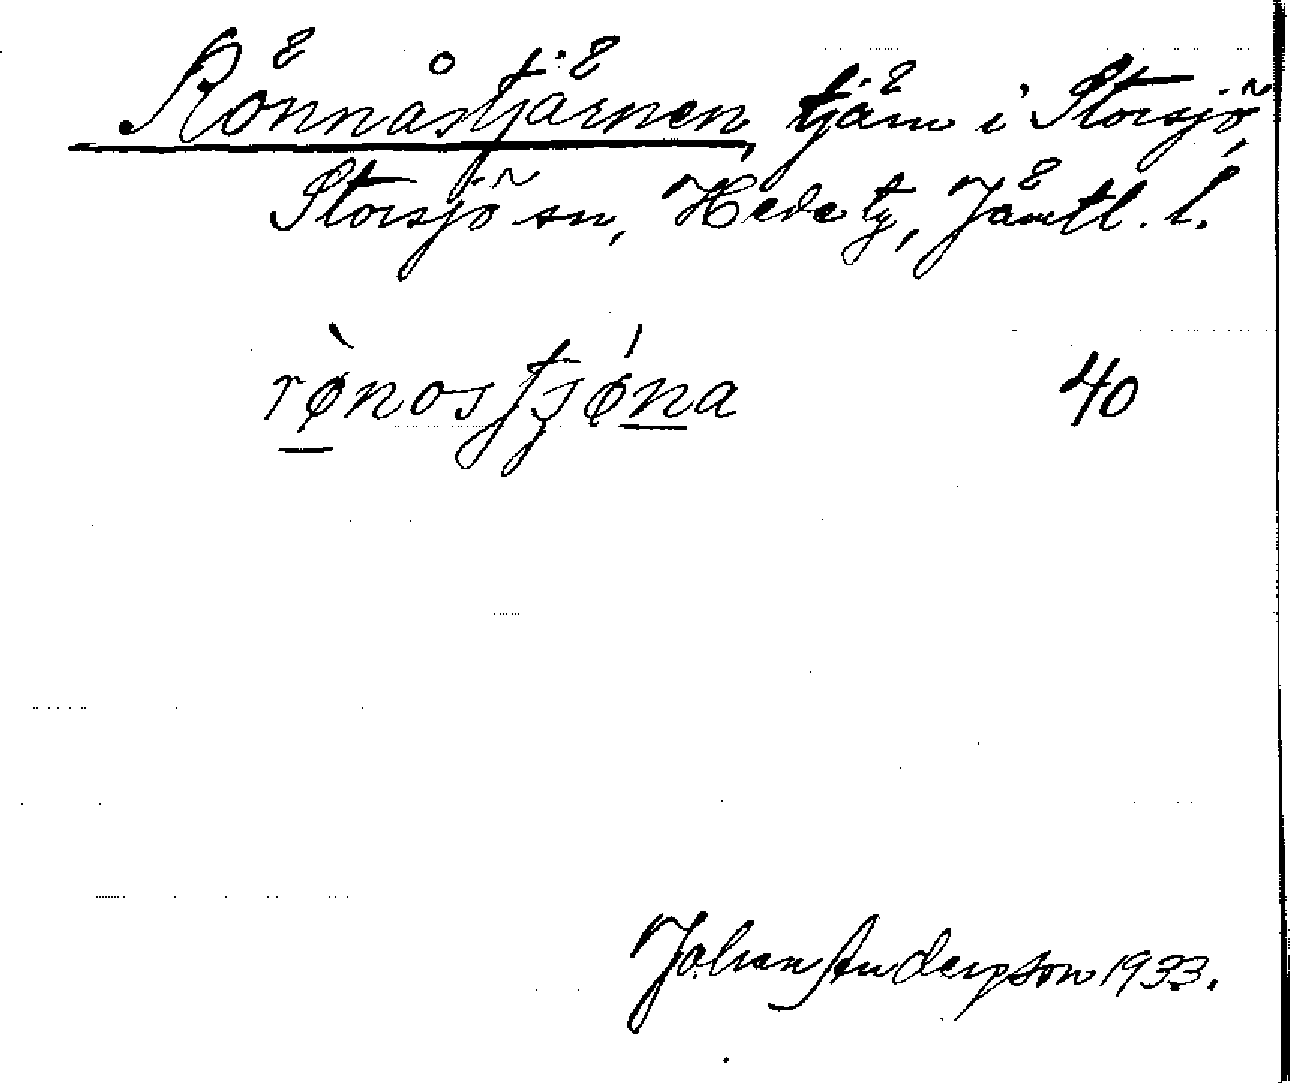 Rönnåstjärnen, tjärn i Storsjö
Storsjö sn, Hede tg, Jämtl. l.
rø̀nostjǿna 40
Johan Anderson 1933.